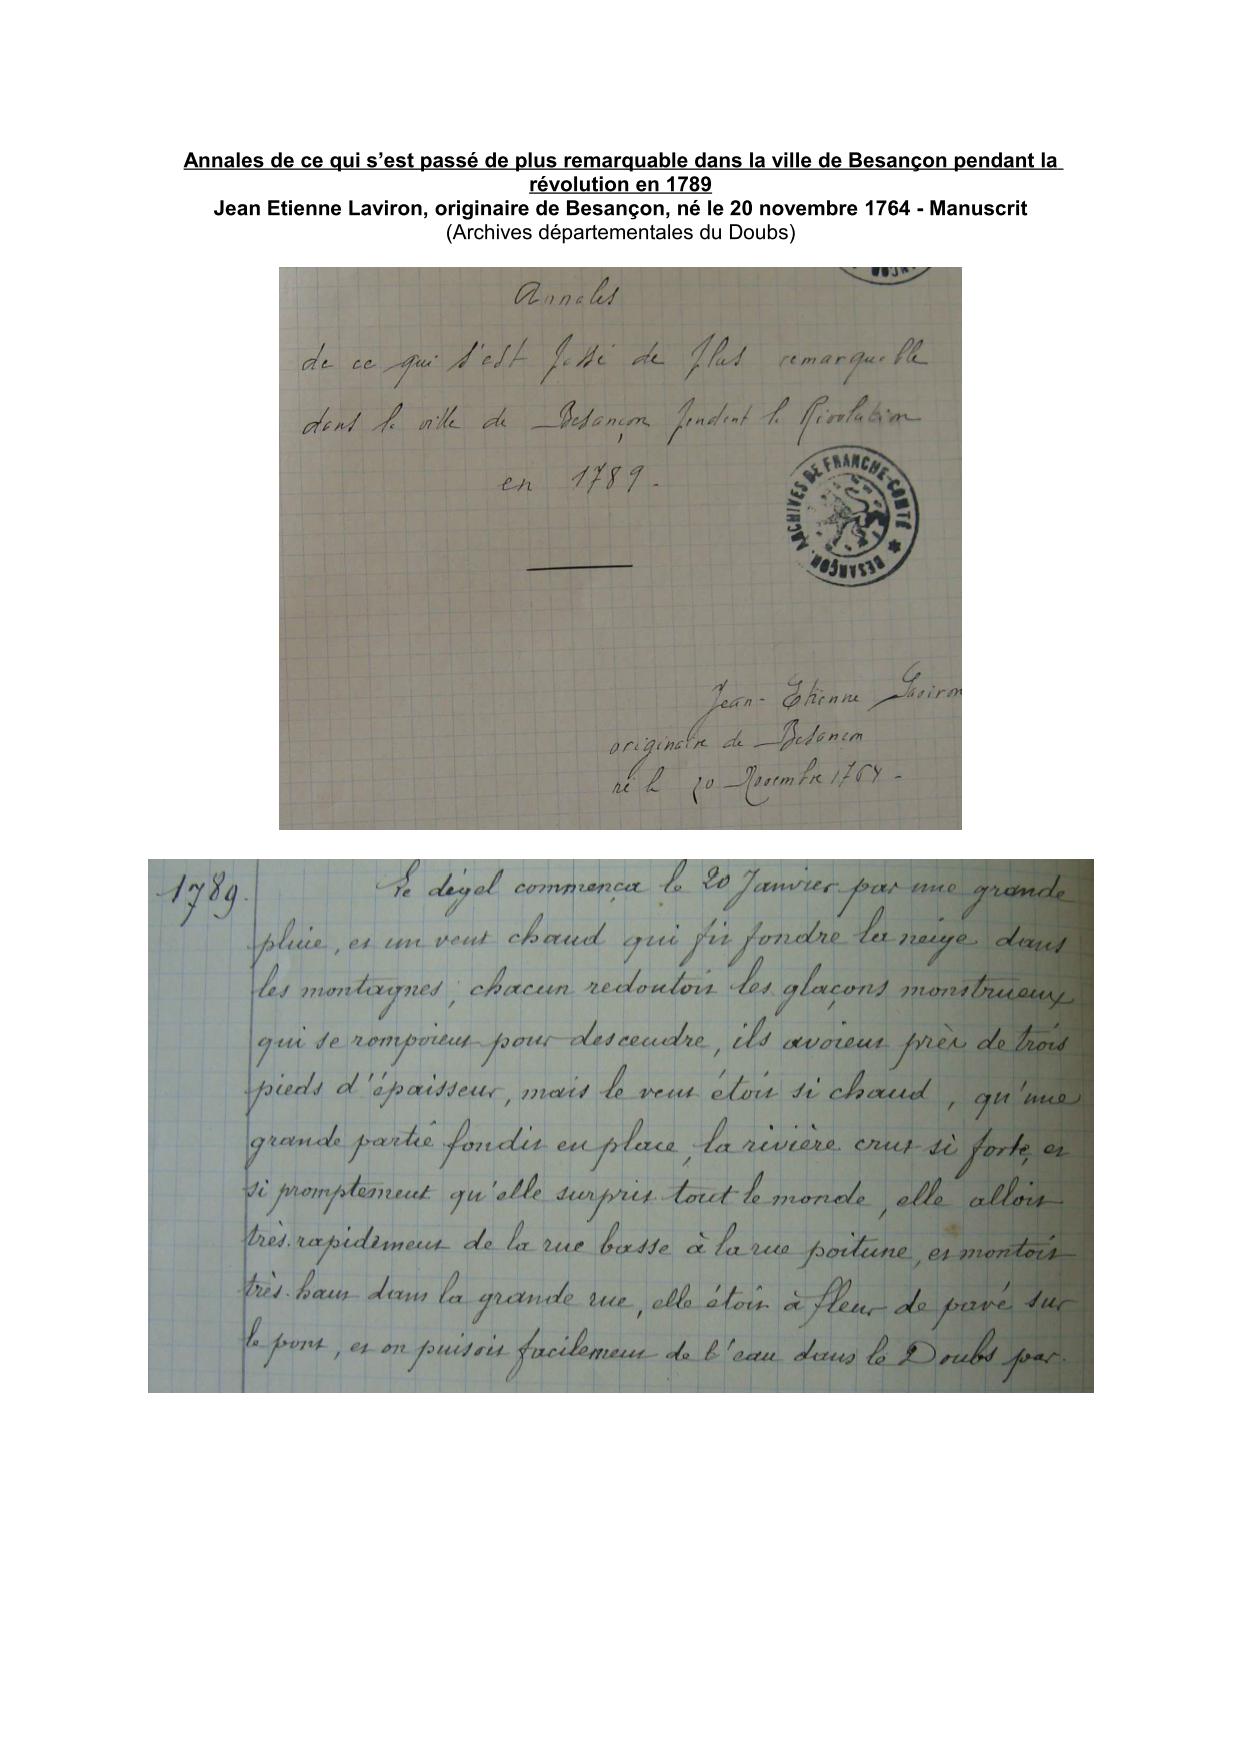 Annales de ce qui s'est passé de plus remarquable dans la ville de Besançon pendant la
révolution en 1789
Jean Etienne Laviron, originaire de Besançon, né le 20 novembre 1764 - Manuscrit
(Archives départementales du Doubs)
Annales
de ce qui s'est passé de plus remarquable
dans la ville de Besançon pendant la Révolution
en 1789.
BESANÇON. ARCHIVES DE FRANCHE-COMTÉ *
Jean-Etienne Laviron
originaire de Besançon
né le 20 Novembre 1764.
1789. Le dégel commença le 20 Janvier par une grande
pluie, et un vent chaud qui fit fondre la neige dans
les montagnes, chacun redoutoit les glaçons monstrueux
qui se rompoient pour descendre, ils avoient près de trois
pieds d'épaisseur, mais le vent étoit si chaud, qu'une
grande partie fondit en place, la rivière crut si forte, et
si promptement qu'elle surprit tout le monde, elle alloit
très-rapidement de la rue basse à la rue poitune, et montoit
très-haut dans la grande rue, elle étoit à fleur de pavé sur
le pont, et on puisoit facilement de l'eau dans le Doubs par-